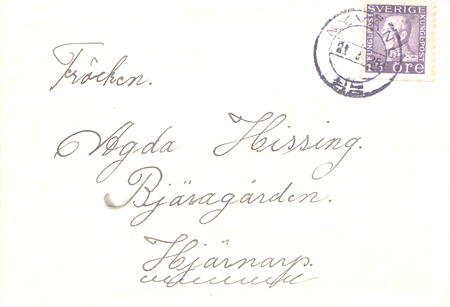 SVERIGE
KUNGL·POST
KUNGL·POST
15 ÖRE
Fröcken.
Agda Hissing.
Bjäragården.
Hjärnarp.